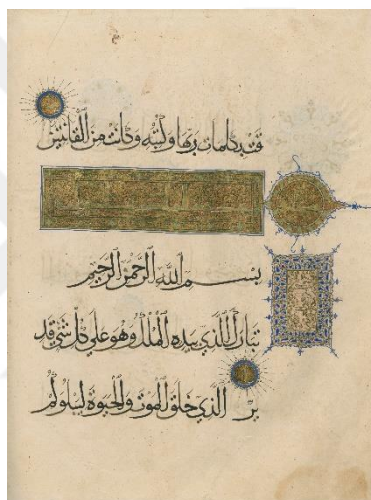 قت بكلمات ربها وكتبه وكانت من القانتين
بسم الله الرحمن الرحيم
تبارك الذي بيده الملك وهو على كل شيء قد
ير الذي خلق الموت والحيوة ليبلوكم